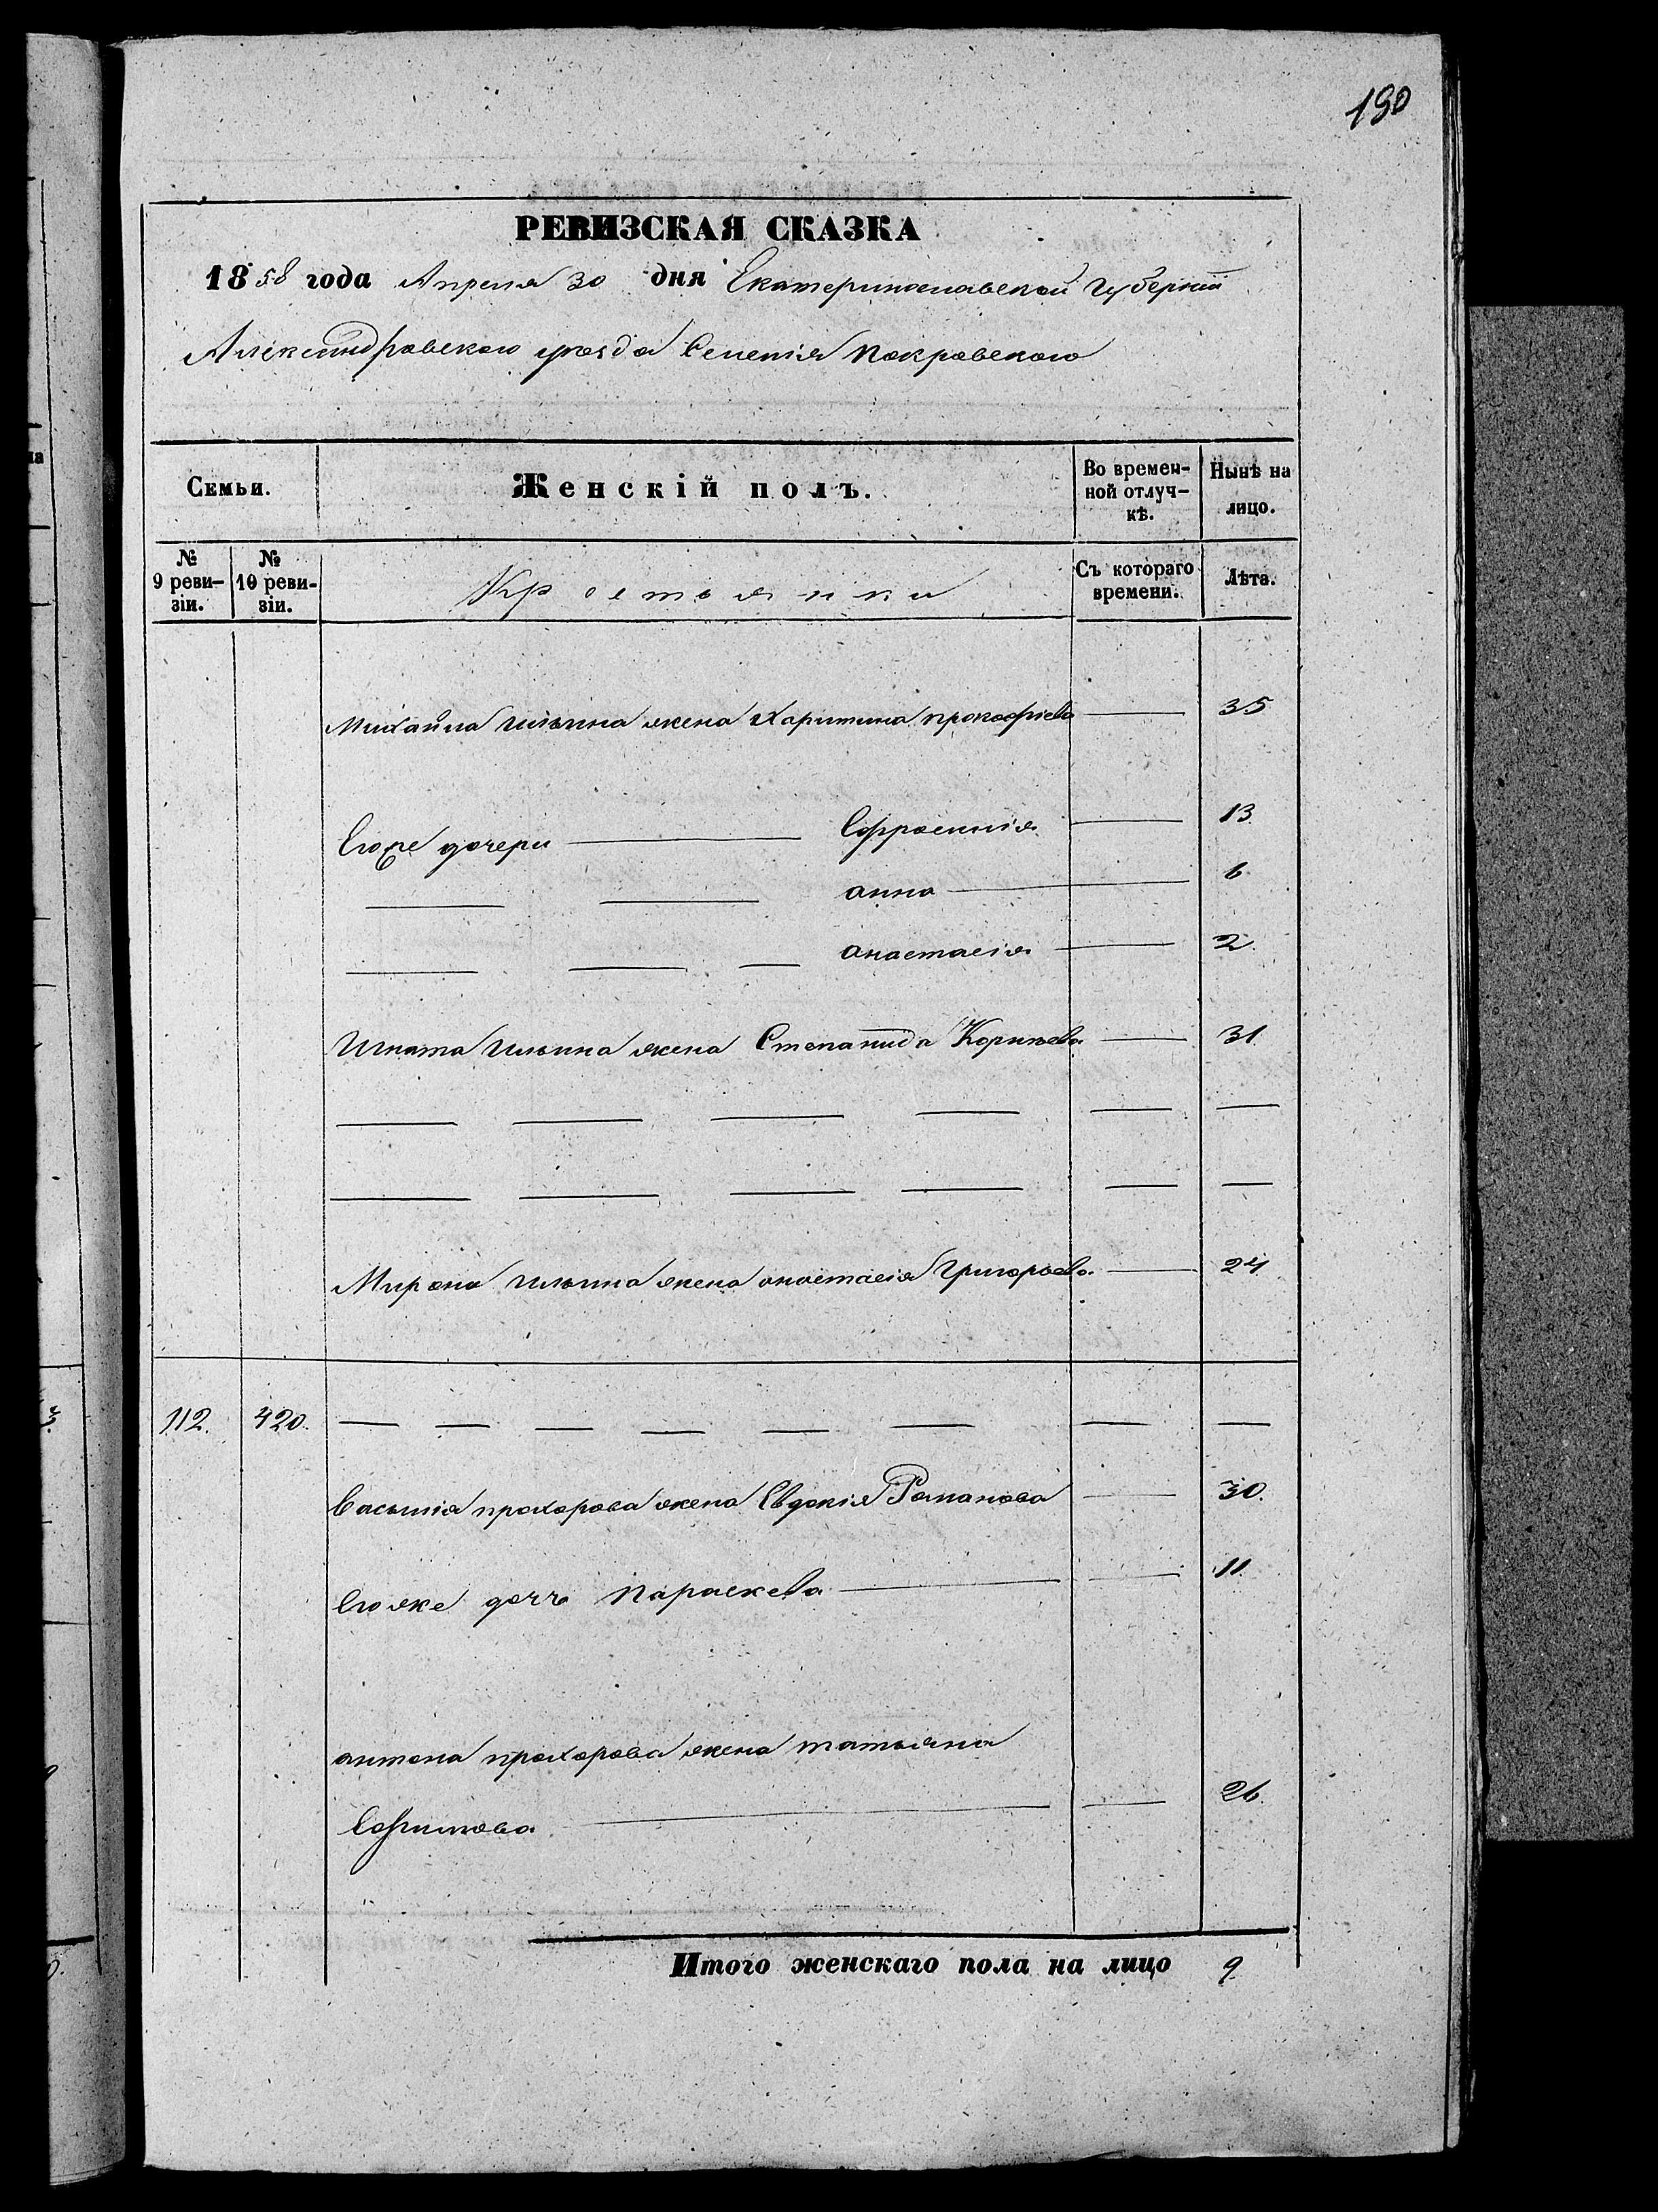 190
РЕВИЗСКАЯ СКАЗКА
1858 года Апреля 30 дня Екатеринославской Губерніи
Александровского уезда Селенія Покровского
Семьи.
Женскій полъ.
Во времен-
ной отлуч-
кѣ.
Нынѣ на
лицо.
№
9 реви-
зіи.
№
10 реви-
зіи.
Крестьянки
Съ котораго
времени.
Лѣта.
Михайла Ильина жена Харитина прокофіева — 35
Егоже дочери — Ефросинія — 13
— — анна — 6
— — — анастасія — 2
Игната Ильина жена Степанида Корнѣева — 31
— — — — — —
— — — — — —
Мирона Ильина жена анастасія Григорьева — 24
112. 420. — — — — — — — —
Василія прохорова жена Евдокія Романова — 30.
Егоже дочь Параскева — — 11
антона прохорова жена татьяна
Ефимова — — 26.
Итого женскаго пола на лицо 9